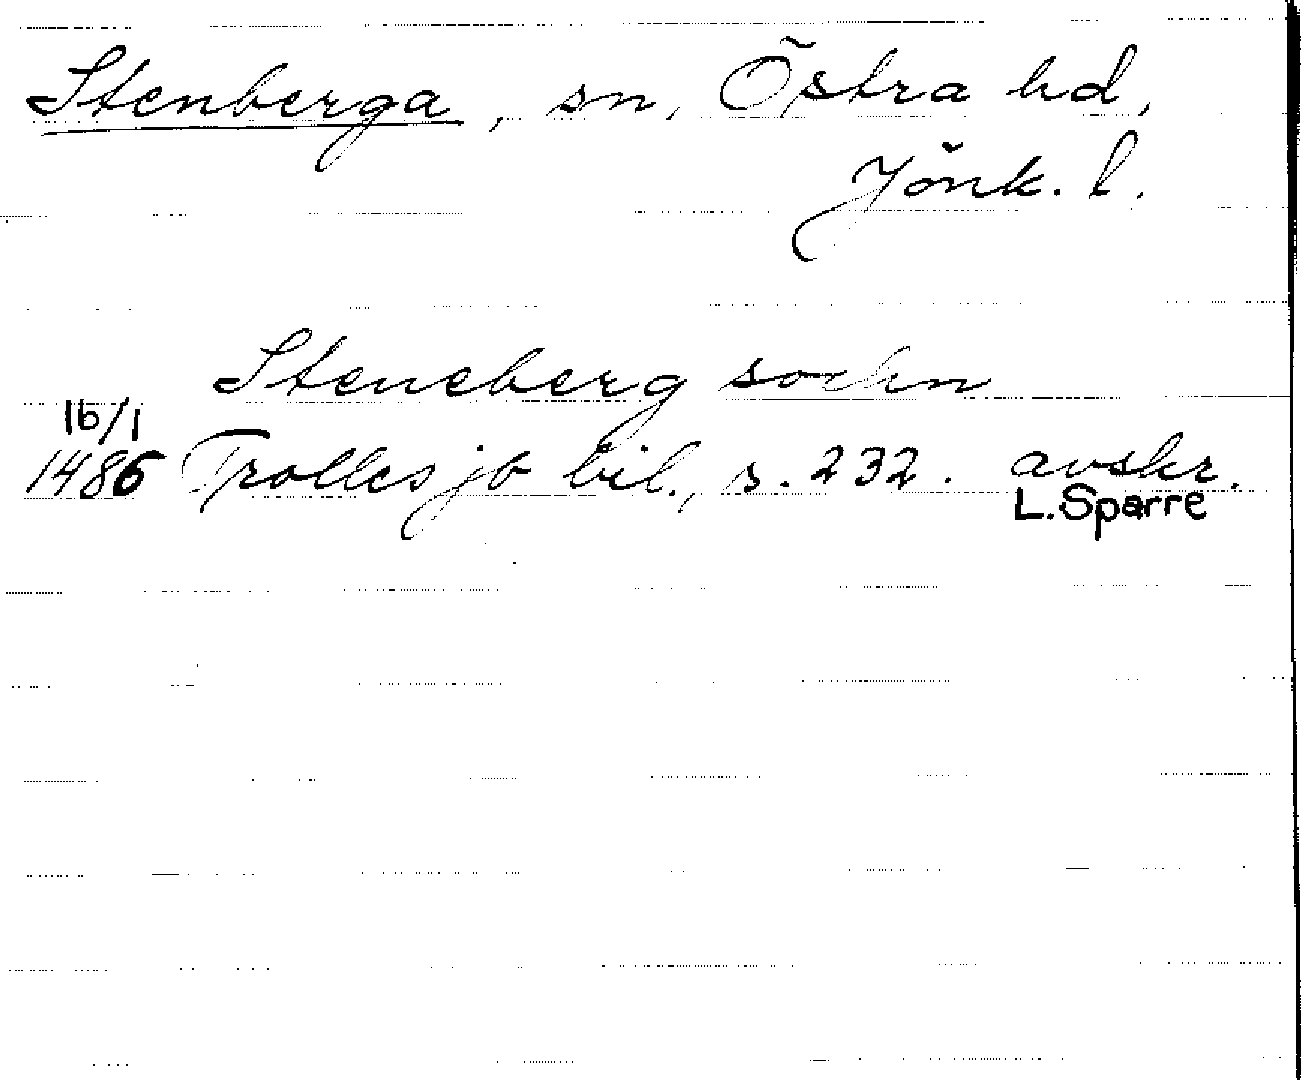 Stenberga, sn, Östra hd,
Jönk. l.
Steneberg sockn
16/1
1486 Trolles jb bil., s. 232. avskr.
L. Sparre